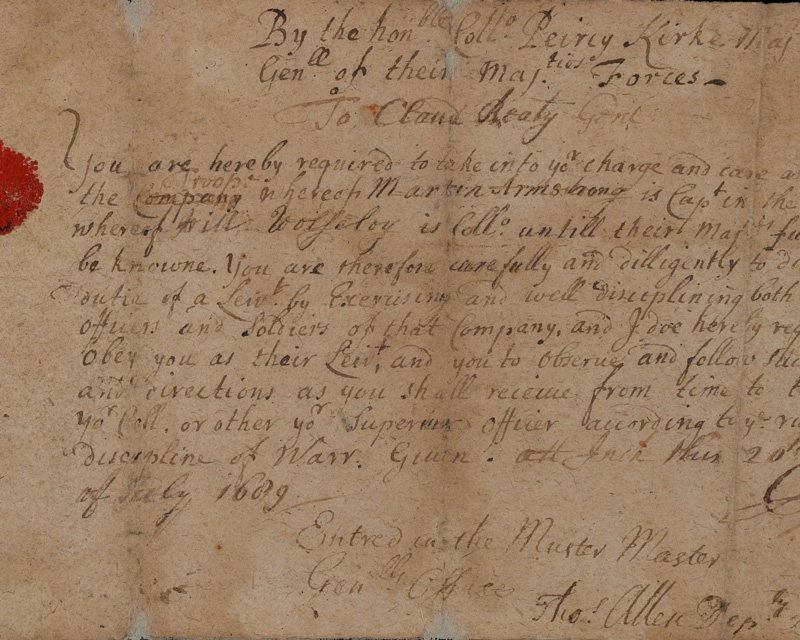 By the hon.ble Coll.o Peircy Kirke Maj
Gen.ll of their Maj.ties Forces
To Claud Beaty Gent
You are hereby required to take into yo.r charge and care
Troope
the Company whereof Martin Armstrong is Cap.t in the
whereof Will: Wolseley is Coll.o untill their Maj.ts
be knowne. You are therefore carefully and dilligently to
dutie of a Leiv.t by Exercising and well disciplining both
officers and Soldiers of that Company, and I doe hereby
Obey you as their Leiv.t, and you to Observe and follow
and directions as you shall receive from time to
yo.r Coll. or other yo.r Superiour Officer according to y.e
discipline of Warr. Given. att Inch this 20th
of July 1689
Entred in the Muster Master
Gen.lls Office
Tho.s Allen Dep.ty